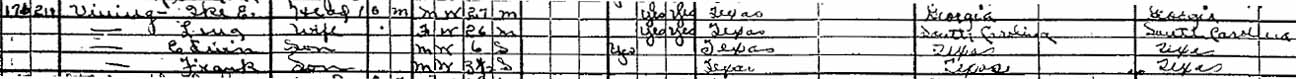 Vining Ike E. Head O M M W 27 M Yes Yes Texas Georgia Georgia
— Lena Wife F W 26 M Yes Yes Texas South Carolina South Carolina
— Edwin Son M W 6 S Yes Texas Texas Texas
— Frank Son M W 3 S Texas Texas Texas